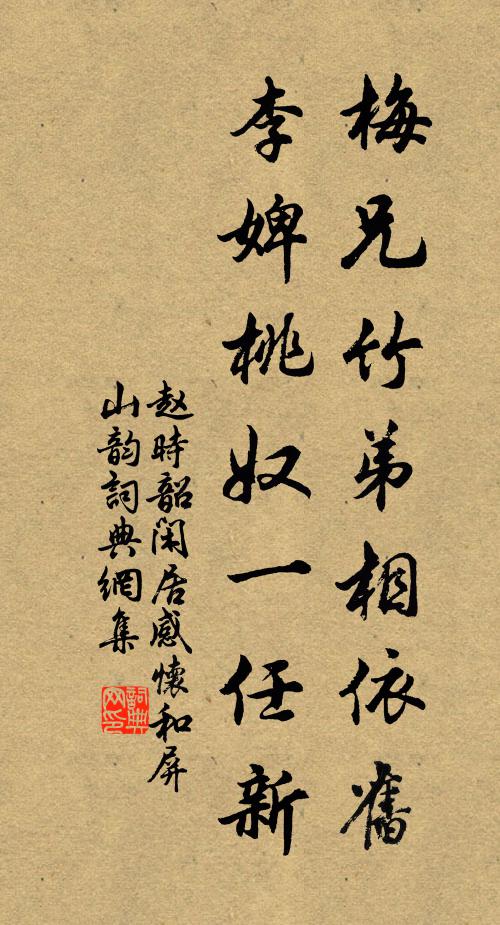 梅兄竹弟相依舊
李婢桃奴一任新
赵時韶閑居感懷和屏
山韵詞典網集
詞典网印